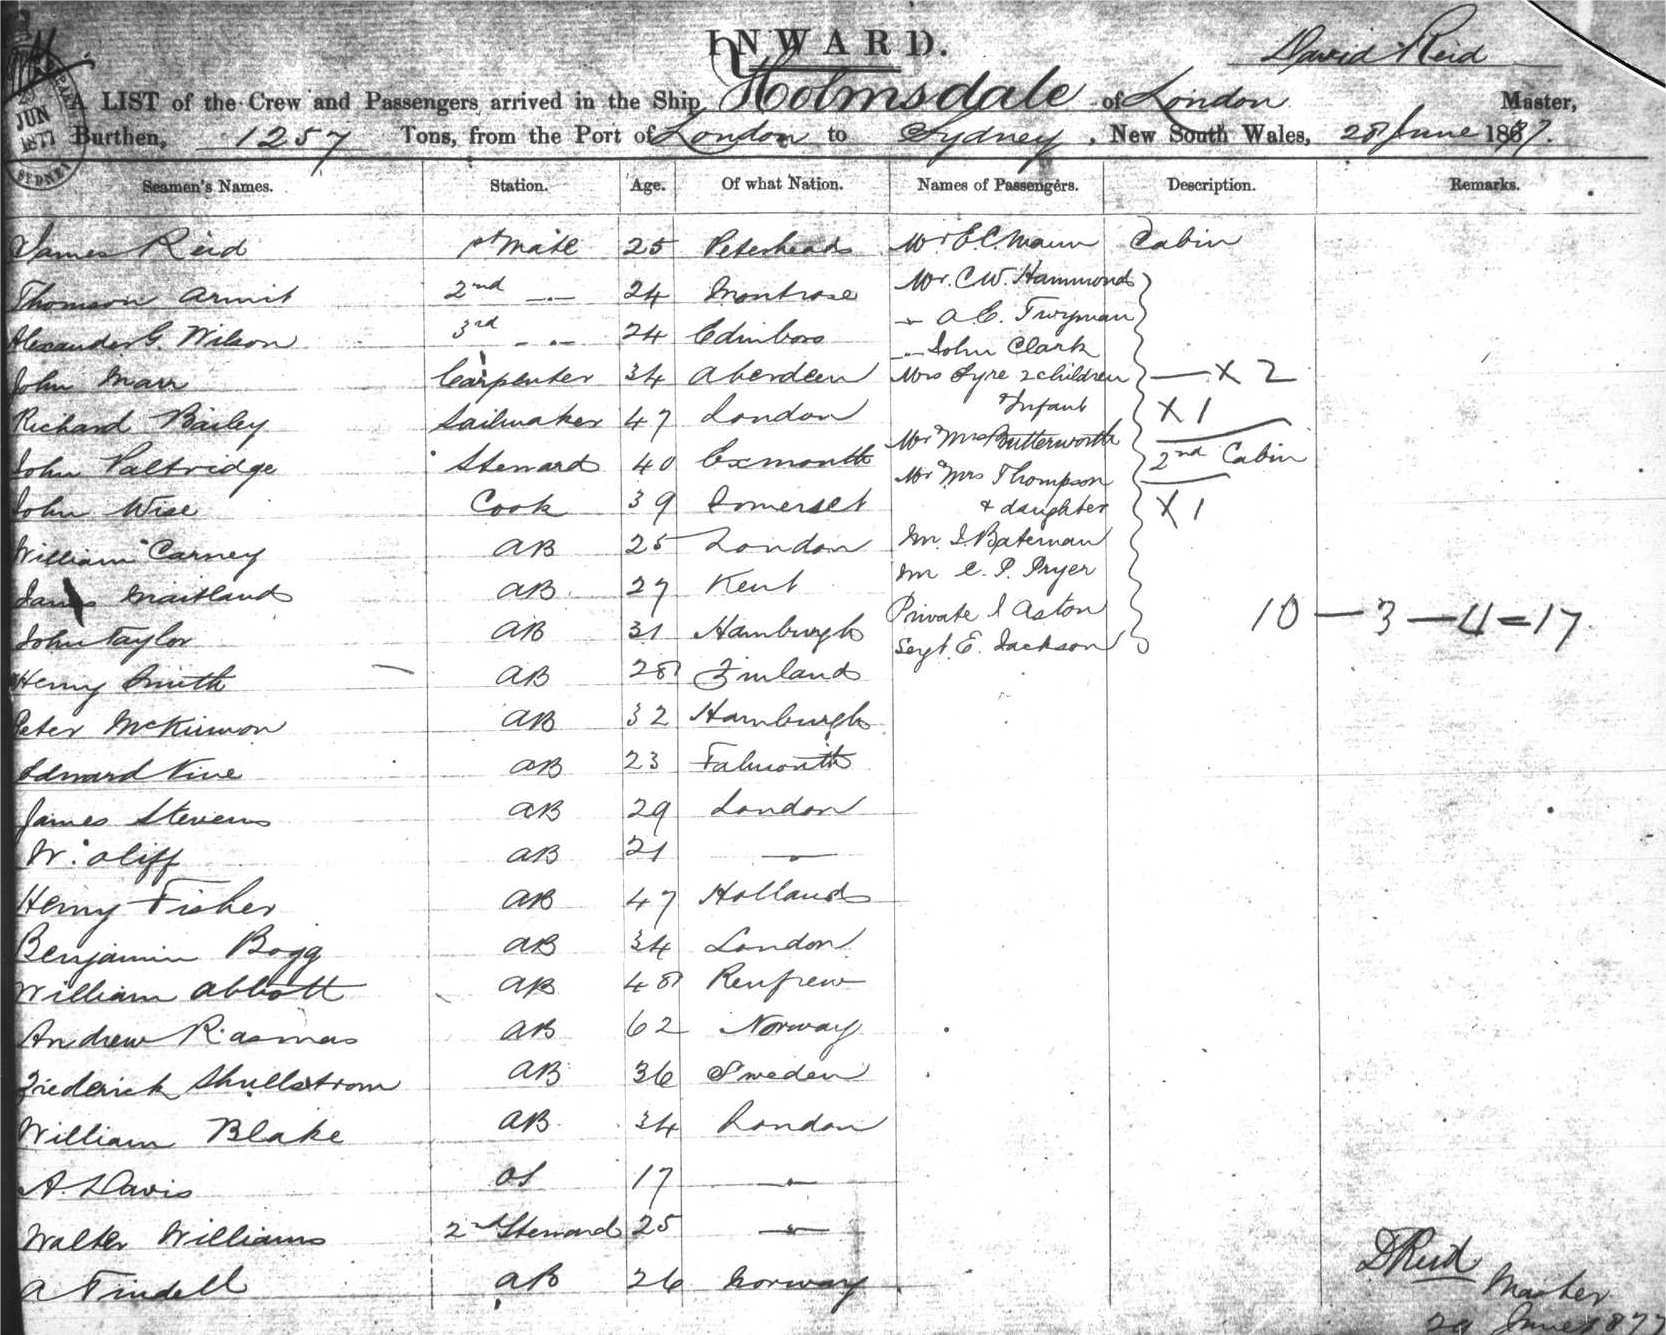 INWARD.
David Reid
A LIST of the Crew and Passengers arrived in the Ship Holmsdale of London Master,
Burthen, 1257 Tons, from the Port of London to Sydney, New South Wales, 28 June 1877.
JUN
1877
SYDNEY
Seamen's Names. Station. Age. Of what Nation. Names of Passengers. Description. Remarks.
James Reid 1st Mate 25 Peterhead Mr E C Mann Cabin
Thomson Armit 2nd " 24 Montrose Mr. C W. Hammond
Alexander G. Wilson 3rd " 24 Edinboro " A E. Twyman
" John Clark
John Marr Carpenter 34 Aberdeen Mrs Syre 2 children — X 2
Richard Bailey Sailmaker 47 London & Infant X 1
John Paltridge Steward 40 Exmouth Mr & Mrs Butterworth 2nd Cabin
Mr & Mrs Thompson
John Wise Cook 39 Somerset & daughter X 1
William Carney AB 25 London Mr. J. Bateman
James Maitland AB 27 Kent Mr C. P. Pryer
John Taylor AB 31 Hamburgh Private J Aston 10 — 3 — 4 = 17
Sergt. E. Jackson
Henry Smith AB 28 Finland
Peter McKinnon AB 32 Hamburgh
Edward Vine AB 23 Falmouth
James Stevens AB 29 London
W. Oliff AB 21 "
Henry Fisher AB 47 Holland
Benjamin Bogg AB 34 London
William Abbott AB 48 Renfrew
Andrew Rasmas AB 62 Norway
Frederick Shullstrom AB 36 Sweden
William Blake AB 34 London
A. Davis OS 17 "
Walter Williams 2nd Steward 25 "
A Tindell AB 26 Norway
D Reid
Master
29 June 1877